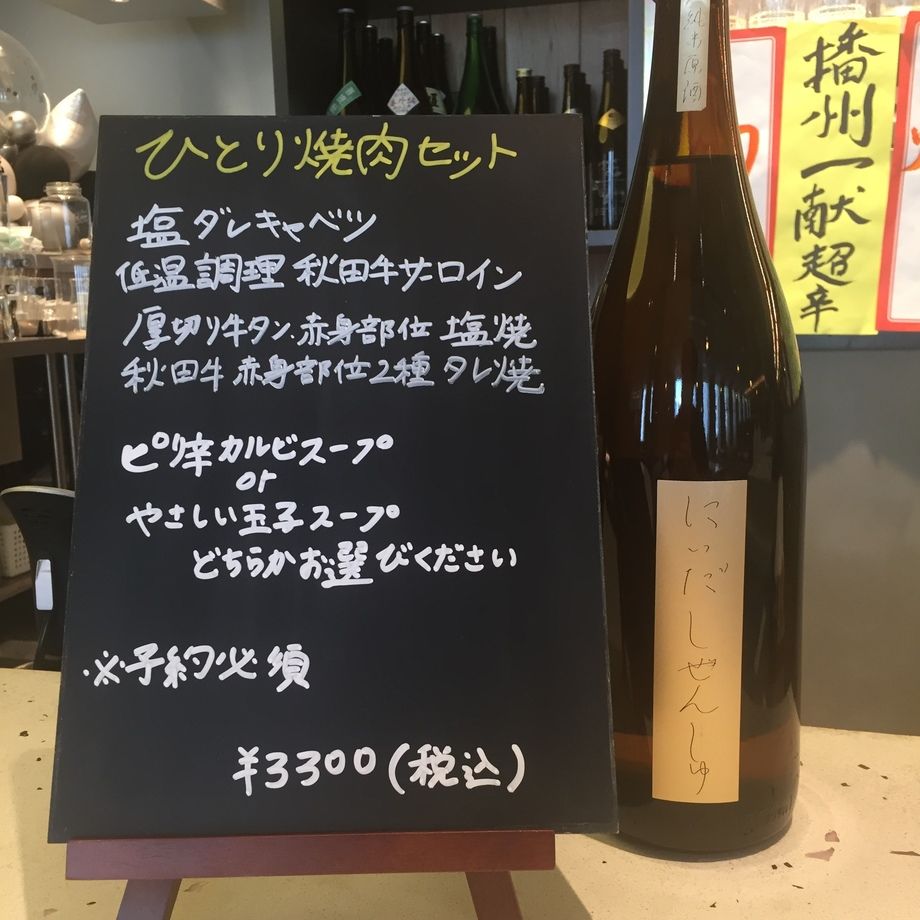 ひとり焼肉セット
塩ダレキャベツ
低温調理 秋田牛サーロイン
厚切り牛タン.赤身部位 塩焼
秋田牛 赤身部位2種 タレ焼
ピリ辛カルビスープ
or
やさしい玉子スープ
どちらかお選びください
※予約必須
¥3300(税込)
純米原酒
にいだしぜんしゅ
播州一献超辛